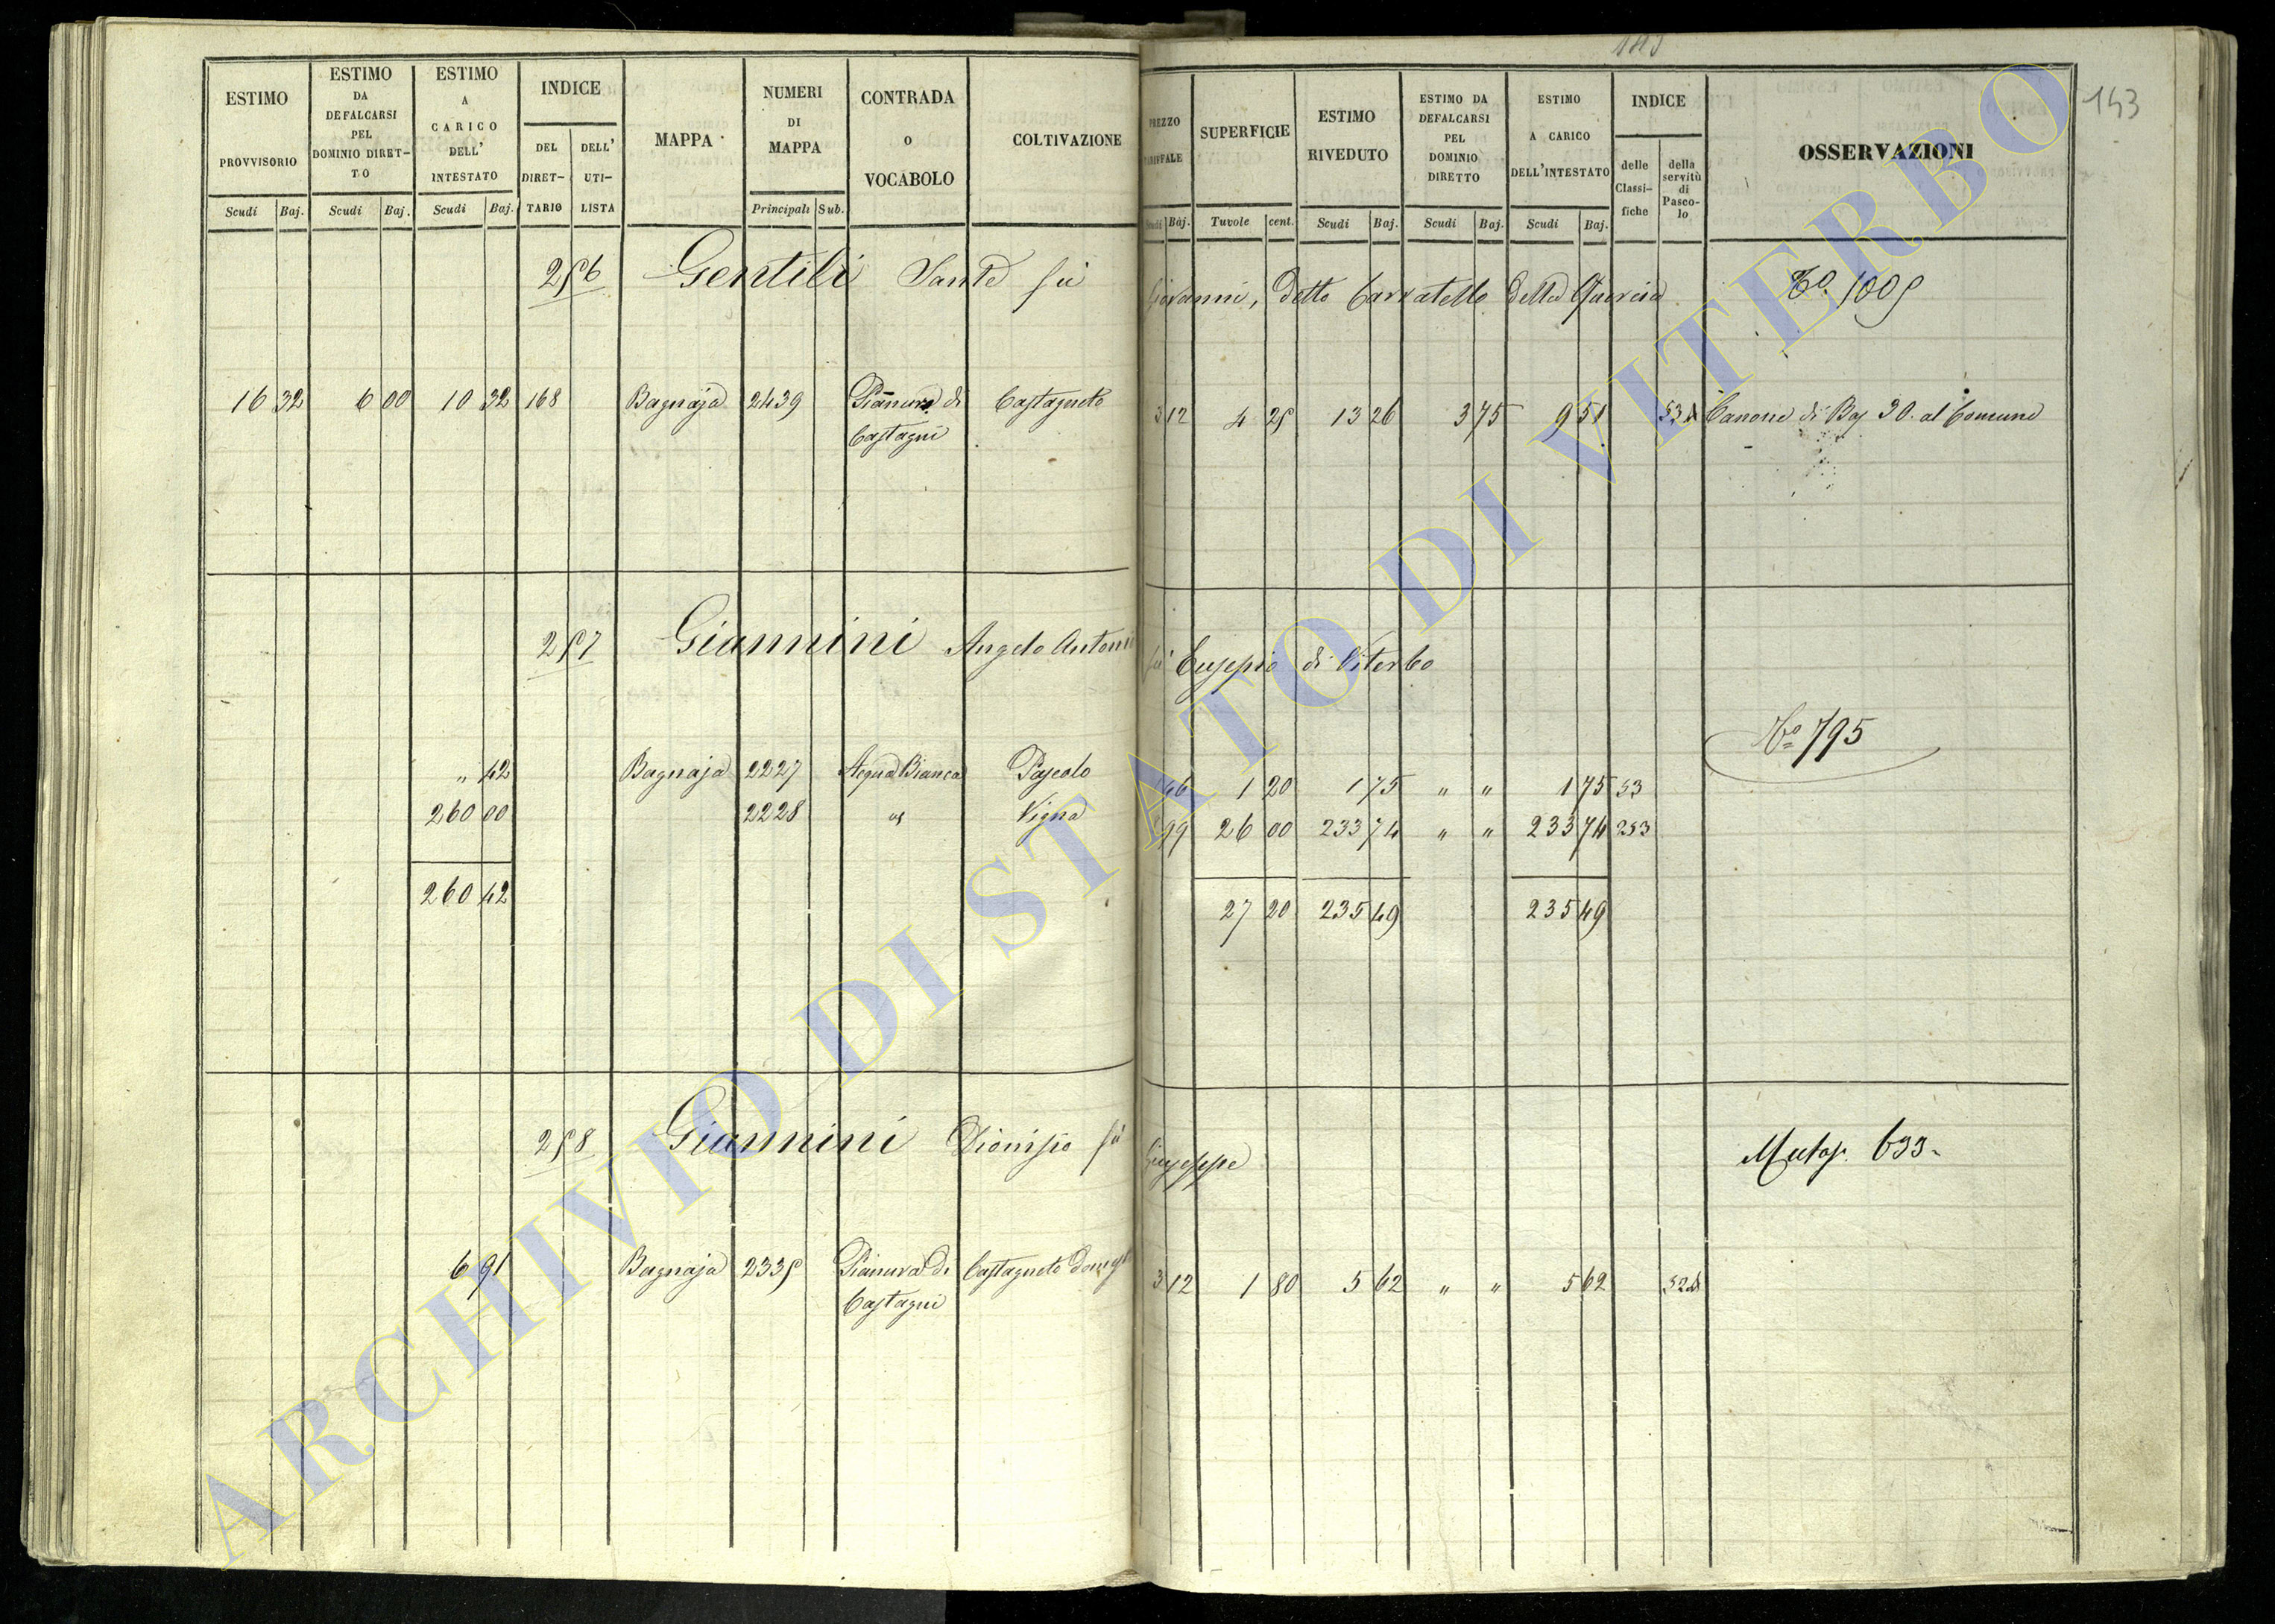 183
143
ESTIMO PROVVISORIO Scudi Baj.
ESTIMO DA DEFALCARSI PEL DOMINIO DIRET-TO Scudi Baj.
ESTIMO A CARICO DELL' INTESTATO Scudi Baj.
INDICE DEL DIRET-TARIO DELL' UTI-LISTA
MAPPA
NUMERI DI MAPPA Principali Sub.
CONTRADA O VOCABOLO
COLTIVAZIONE
PREZZO TARIFFALE Scudi Baj.
SUPERFICIE Tavole cent.
ESTIMO RIVEDUTO Scudi Baj.
ESTIMO DA DEFALCARSI PEL DOMINIO DIRETTO Scudi Baj.
ESTIMO A CARICO DELL'INTESTATO Scudi Baj.
INDICE delle Classi-fiche della servitù di Pasco-lo
OSSERVAZIONI
256 Gentili Sante fù Giovanni, detto Carratello della Quercia No. 1005
16 32 6 00 10 32 168 Bagnaja 2439 Pianura di Castagneto 3 12 4 25 13 26 3 75 9 51 Canone di Baj 30. al Comune
Castagni
257 Giannini Angelo Antonio fù Eusepio di Viterbo
No 795
" 42 Bagnaja 2227 Acqua Bianca Pascolo 46 1 20 1 75 " " 1 75 53
260 00 2228 " Vigna 99 26 00 233 74 " " 233 74 253
260 42 27 20 235 49 235 49
258 Giannini Dionisio fù Giuseppe Mutaz. 633
6 91 Bagnaja 2335 Pianura di Castagneto 3 12 1 80 5 62 " " 5 62
Castagni
ARCHIVIO DI STATO DI VITERBO